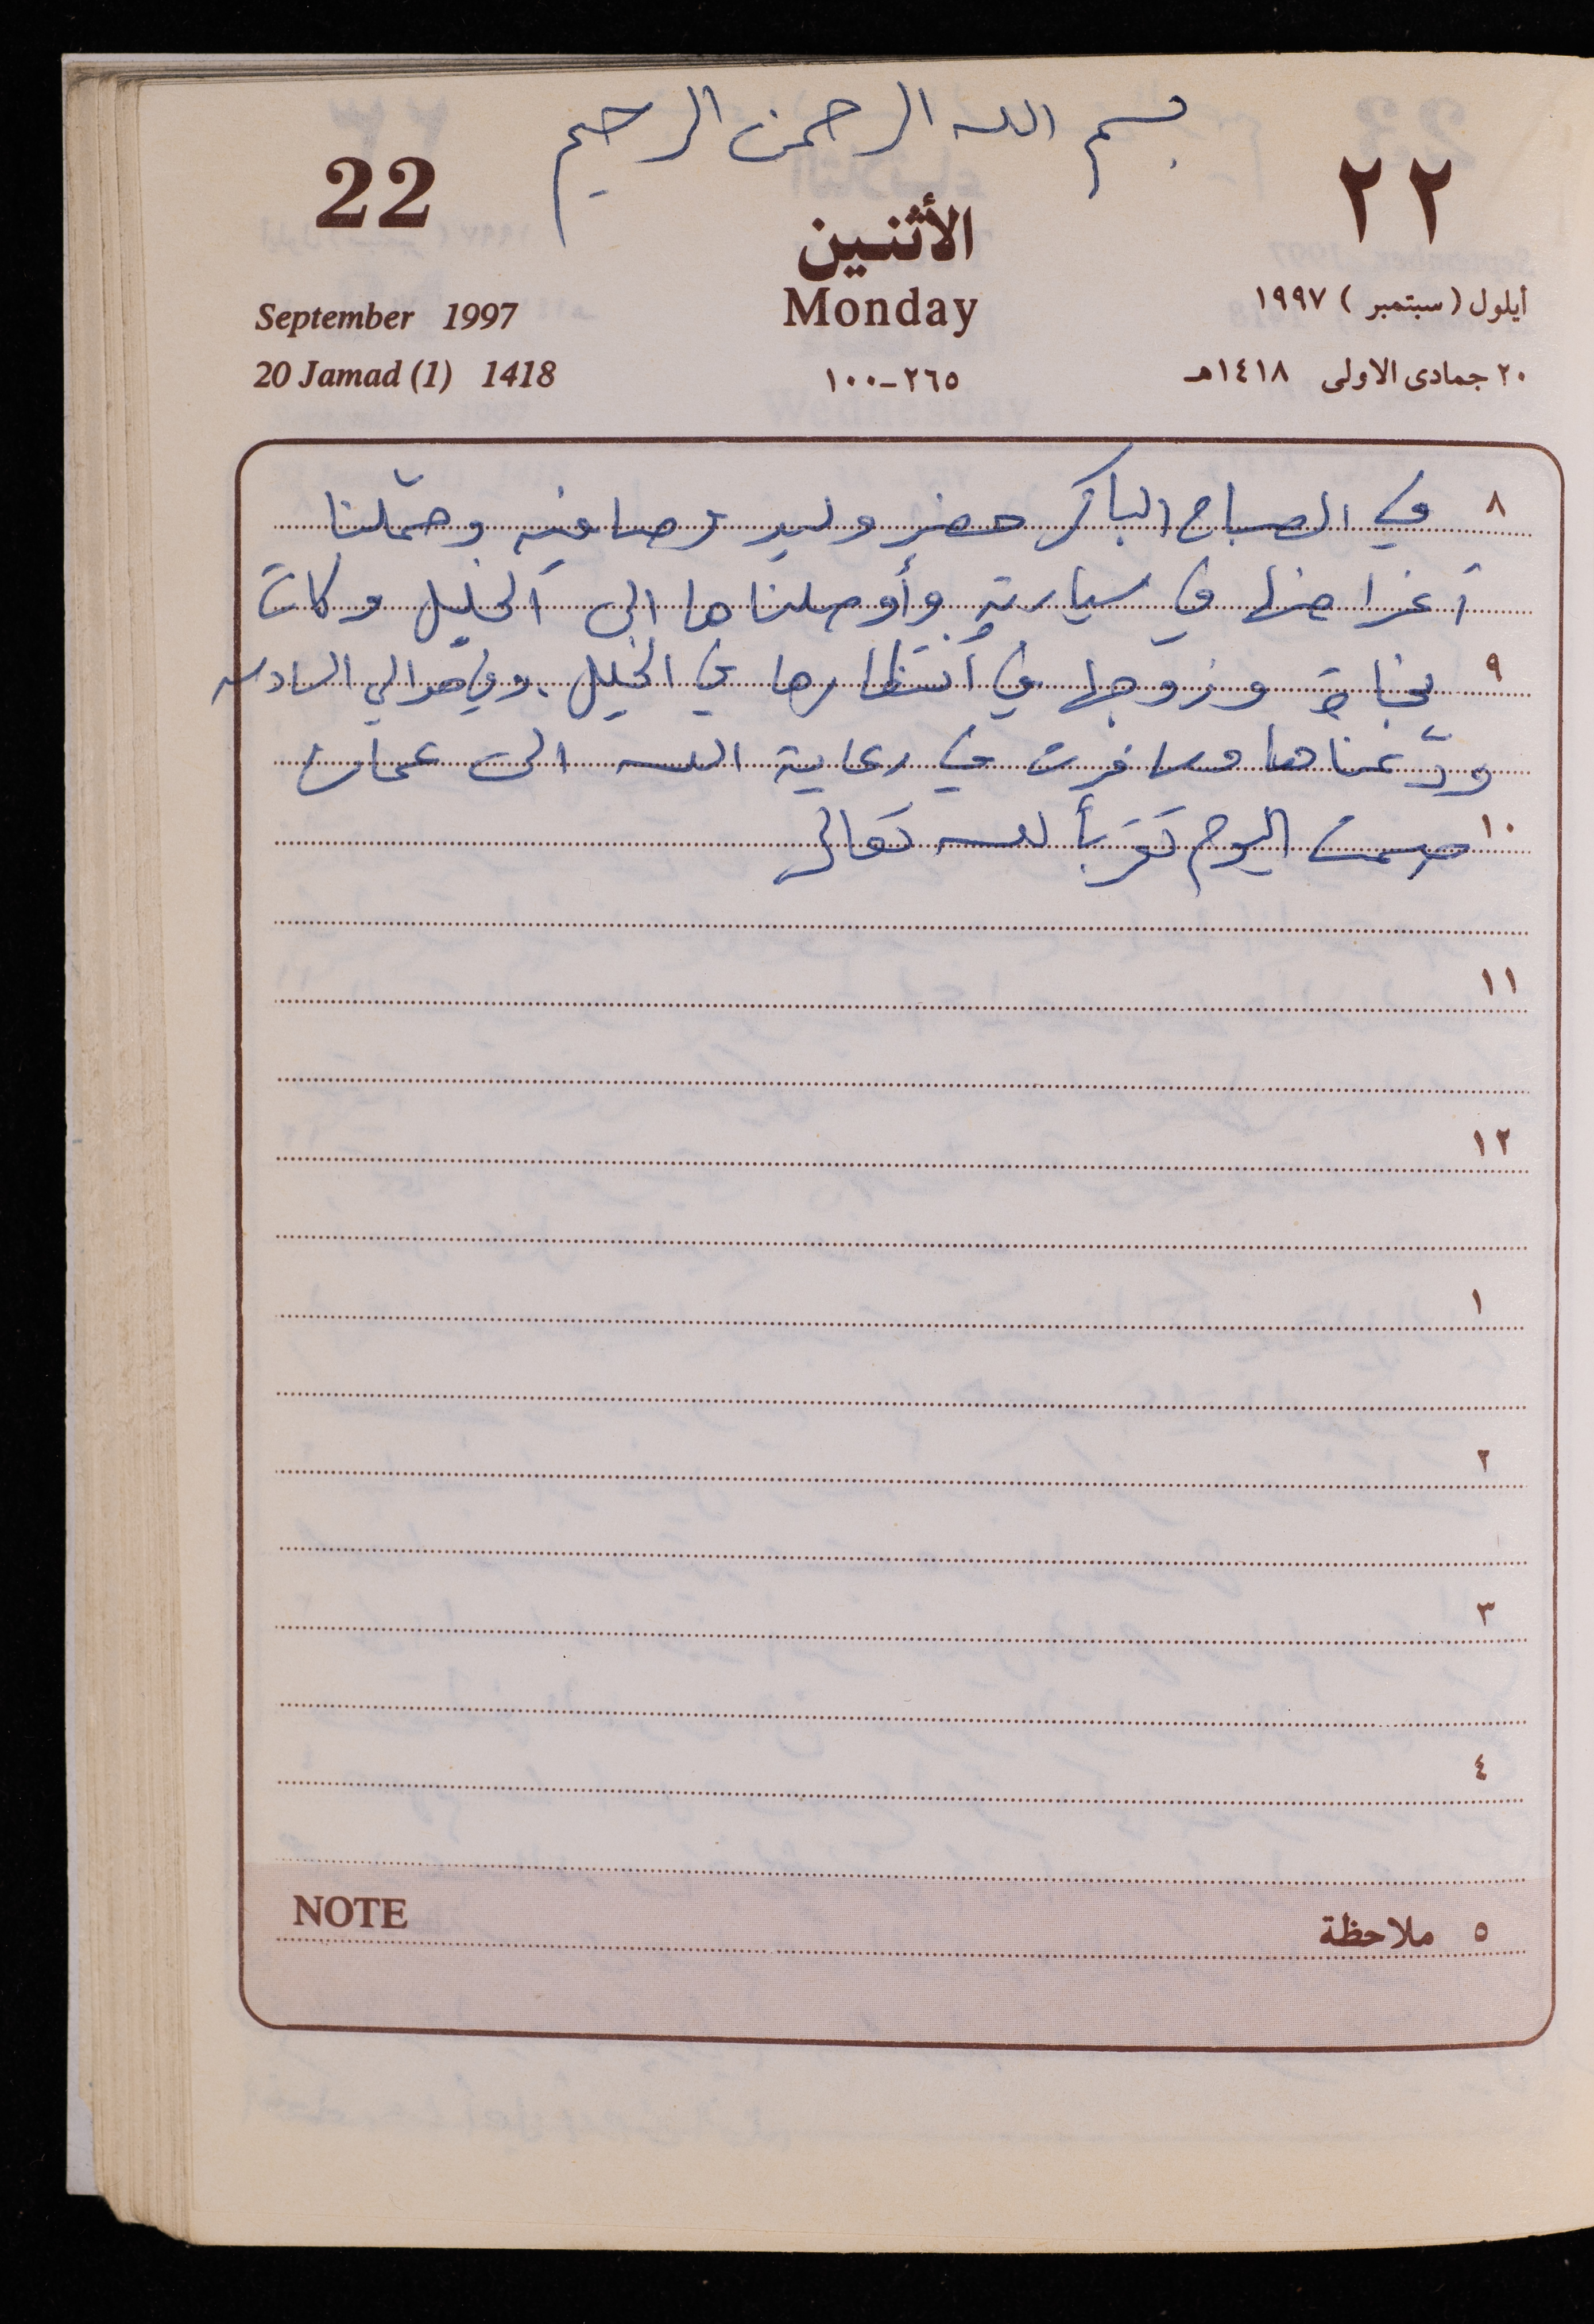 بسم الله الرحمن الرحيم
22
٢٢
الأثنين
Monday
September 1997
أيلول (سبتمبر) ١٩٩٧
20 Jamad (1) 1418
٢٦٥-١٠٠
٢٠ جمادى الاولى ١٤١٨هـ
٨ في الصباح الباكر حضر وليد وحمّلنا
أغراضها في سيارته وأوصلناها الى الخليل وكانت
٩ نجاة وزوجها في أنتظارها في الخليل. وفي حوالي السادسه
ودّعناها وسافرت في رعاية الله الى عمان
١٠ صمت اليوم تقرباً لله تعالى
١١
١٢
١
٢
٣
٤
NOTE
٥ ملاحظة